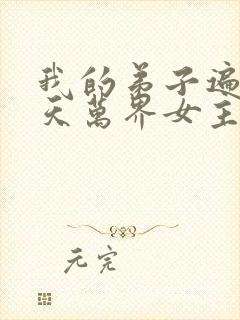 我的弟子遍
天萬界女主
元完